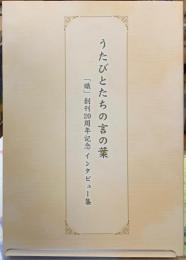 うたびとたちの言の葉
「蛾」創刊20周年記念 インタビュー集